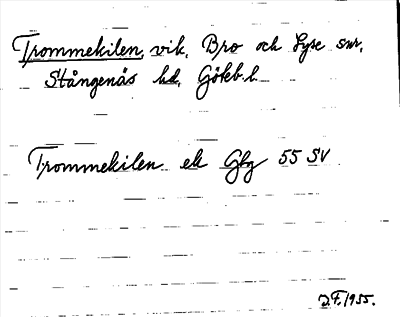 Trommekilen, vik, Bro och Lyse snr,
Stångenäs hd, Götebl.
Trommekilen ek Gbg 55 SV
J.F. 1955.